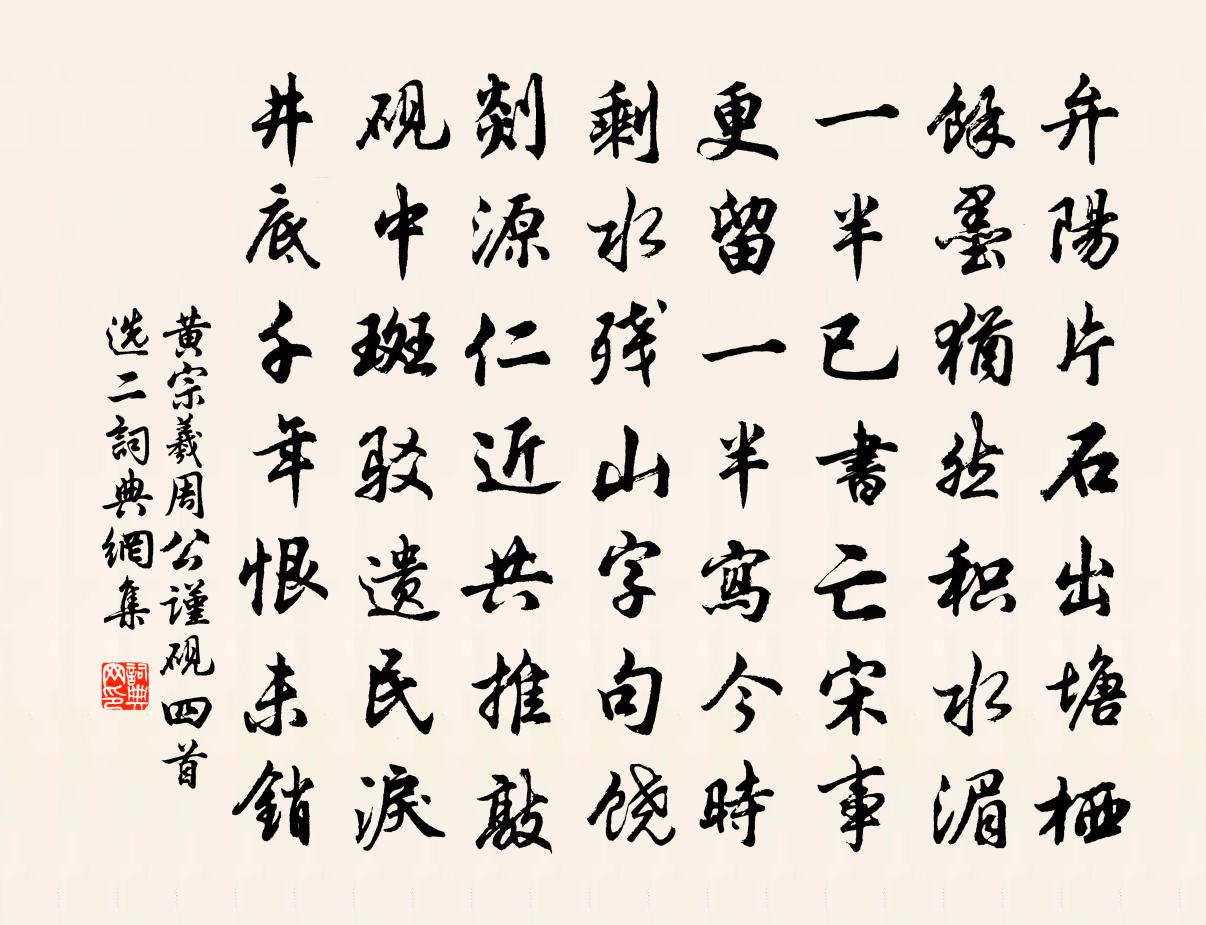 弁陽片石出塘栖
餘墨猶然积水湄
一半已書亡宋事
更留一半寫今時
剩水残山字句饶
剡源仁近共推敲
砚中斑驳遗民淚
井底千年恨未銷
黄宗羲周公謹砚四首
选二詞典網集
詞典